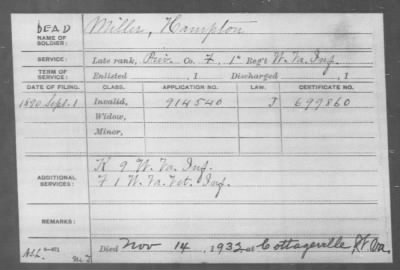 DEAD
NAME OF SOLDIER: Miller, Hampton
SERVICE: Late rank, Priv Co. F, 1st Reg't W. Va. Inf.
TERM OF SERVICE: Enlisted , 1 Discharged , 1
DATE OF FILING. CLASS. APPLICATION NO. LAW. CERTIFICATE NO.
1890 Sept. 1 Invalid, 914540 J 699860
Widow,
Minor,
K 9 W. Va. Inf.
ADDITIONAL SERVICES: F 1 W. Va. Vet. Inf.
REMARKS:
Died Nov 14, 1932, at Cottageville W. Va.